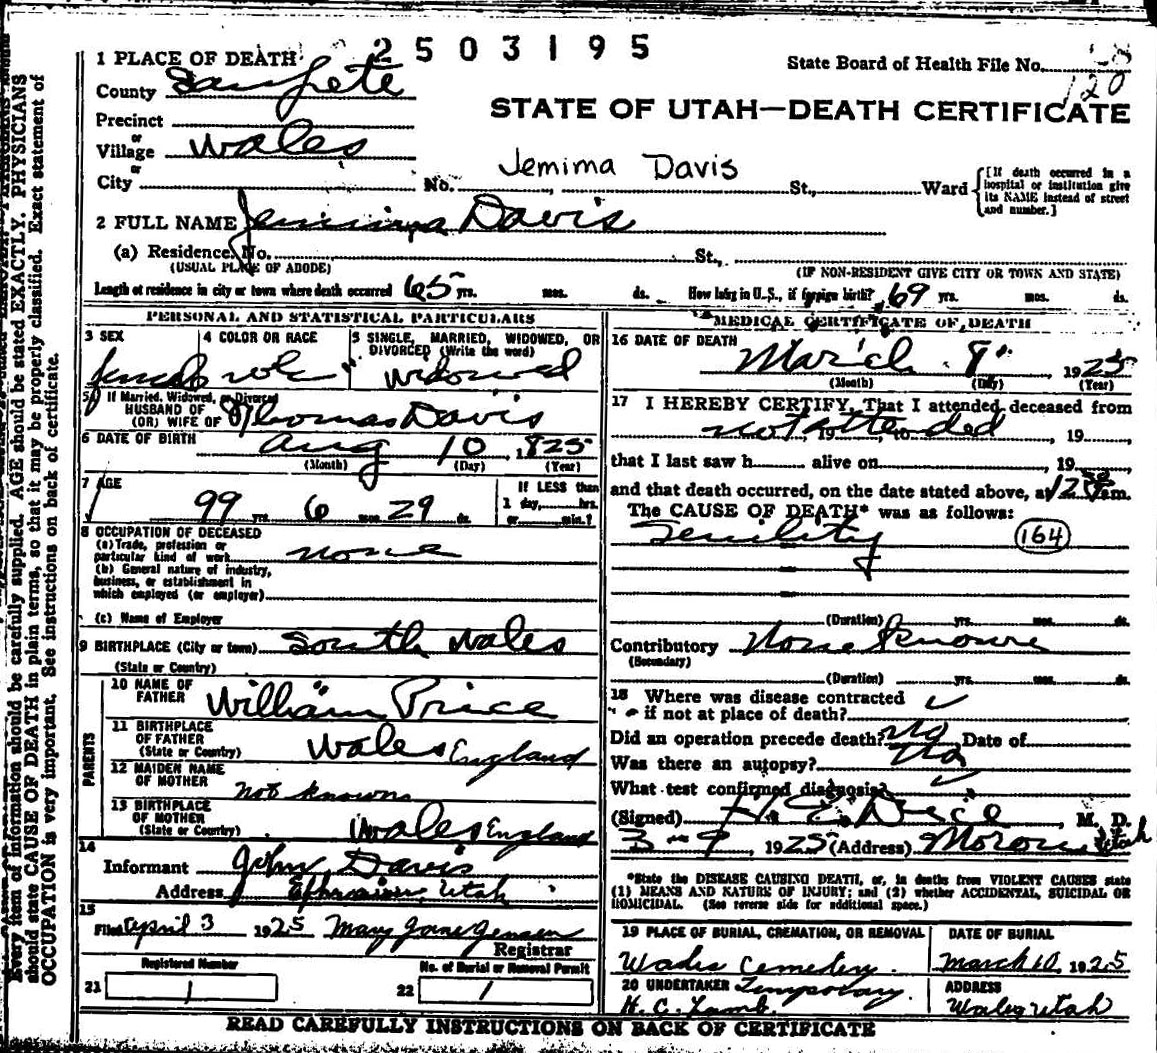 2503195
1 PLACE OF DEATH
State Board of Health File No.
120
County Sanpete
STATE OF UTAH—DEATH CERTIFICATE
Precinct
or
Village Wales
or
Jemima Davis
City No. St., Ward
[If death occurred in a hospital or institution give its NAME instead of street and number.]
2 FULL NAME Jemima Davis
(a) Residence. No. St.,
(USUAL PLACE OF ABODE) (IF NON-RESIDENT GIVE CITY OR TOWN AND STATE)
Length of residence in city or town where death occurred 65 yrs. mos. ds. How long in U.S., if foreign birth? 69 yrs. mos. ds.
PERSONAL AND STATISTICAL PARTICULARS
3 SEX 4 COLOR OR RACE 5 SINGLE, MARRIED, WIDOWED, OR
DIVORCED (Write the word)
female Widowed
5a If Married, Widowed, or Divorced
HUSBAND OF
(OR) WIFE OF Thomas Davis
6 DATE OF BIRTH Aug 10, 1825
(Month) (Day) (Year)
7 AGE
If LESS than
99 yrs. 6 mos. 29 ds. 1 day, hrs.
or min.?
8 OCCUPATION OF DECEASED
(a) Trade, profession or
particular kind of work none
(b) General nature of industry,
business, or establishment in
which employed (or employer)
(c) Name of Employer
9 BIRTHPLACE (City or town) South Wales
(State or Country)
PARENTS
10 NAME OF
FATHER William Price
11 BIRTHPLACE
OF FATHER
(State or Country) Wales England
12 MAIDEN NAME
OF MOTHER not known
13 BIRTHPLACE
OF MOTHER
(State or Country) Wales England
14
Informant John Davis
Address Ephraim, Utah
15
Filed April 3 1925 Mary Jane Jensen
Registrar
Registered Number No. of Burial or Removal Permit
21 1 22 1
MEDICAL CERTIFICATE OF DEATH
16 DATE OF DEATH
March 8, 1925
(Month) (Day) (Year)
17 I HEREBY CERTIFY, That I attended deceased from
not attended, 19, to, 19
that I last saw h alive on, 19
and that death occurred, on the date stated above, at m.
The CAUSE OF DEATH* was as follows:
Senility 164
(Duration) yrs. mos. ds.
Contributory None known
(Secondary)
(Duration) yrs. mos. ds.
18 Where was disease contracted
if not at place of death?
Did an operation precede death? No Date of
Was there an autopsy? No
What test confirmed diagnosis?
(Signed) M. D.
3-9 1925 (Address) Moroni Utah
*State the DISEASE CAUSING DEATH, or, in deaths from VIOLENT CAUSES state
(1) MEANS AND NATURE OF INJURY; and (2) whether ACCIDENTAL, SUICIDAL OR
HOMICIDAL. (See reverse side for additional space.)
19 PLACE OF BURIAL, CREMATION, OR REMOVAL DATE OF BURIAL
Wales Cemetery. March 10, 1925
20 UNDERTAKER Temporary. ADDRESS
H. C. Lamb. Wales Utah
READ CAREFULLY INSTRUCTIONS ON BACK OF CERTIFICATE
Every item of information should be carefully supplied. AGE should be stated EXACTLY. PHYSICIANS
should state CAUSE OF DEATH in plain terms, so that it may be properly classified. Exact statement of
OCCUPATION is very important. See instructions on back of certificate.